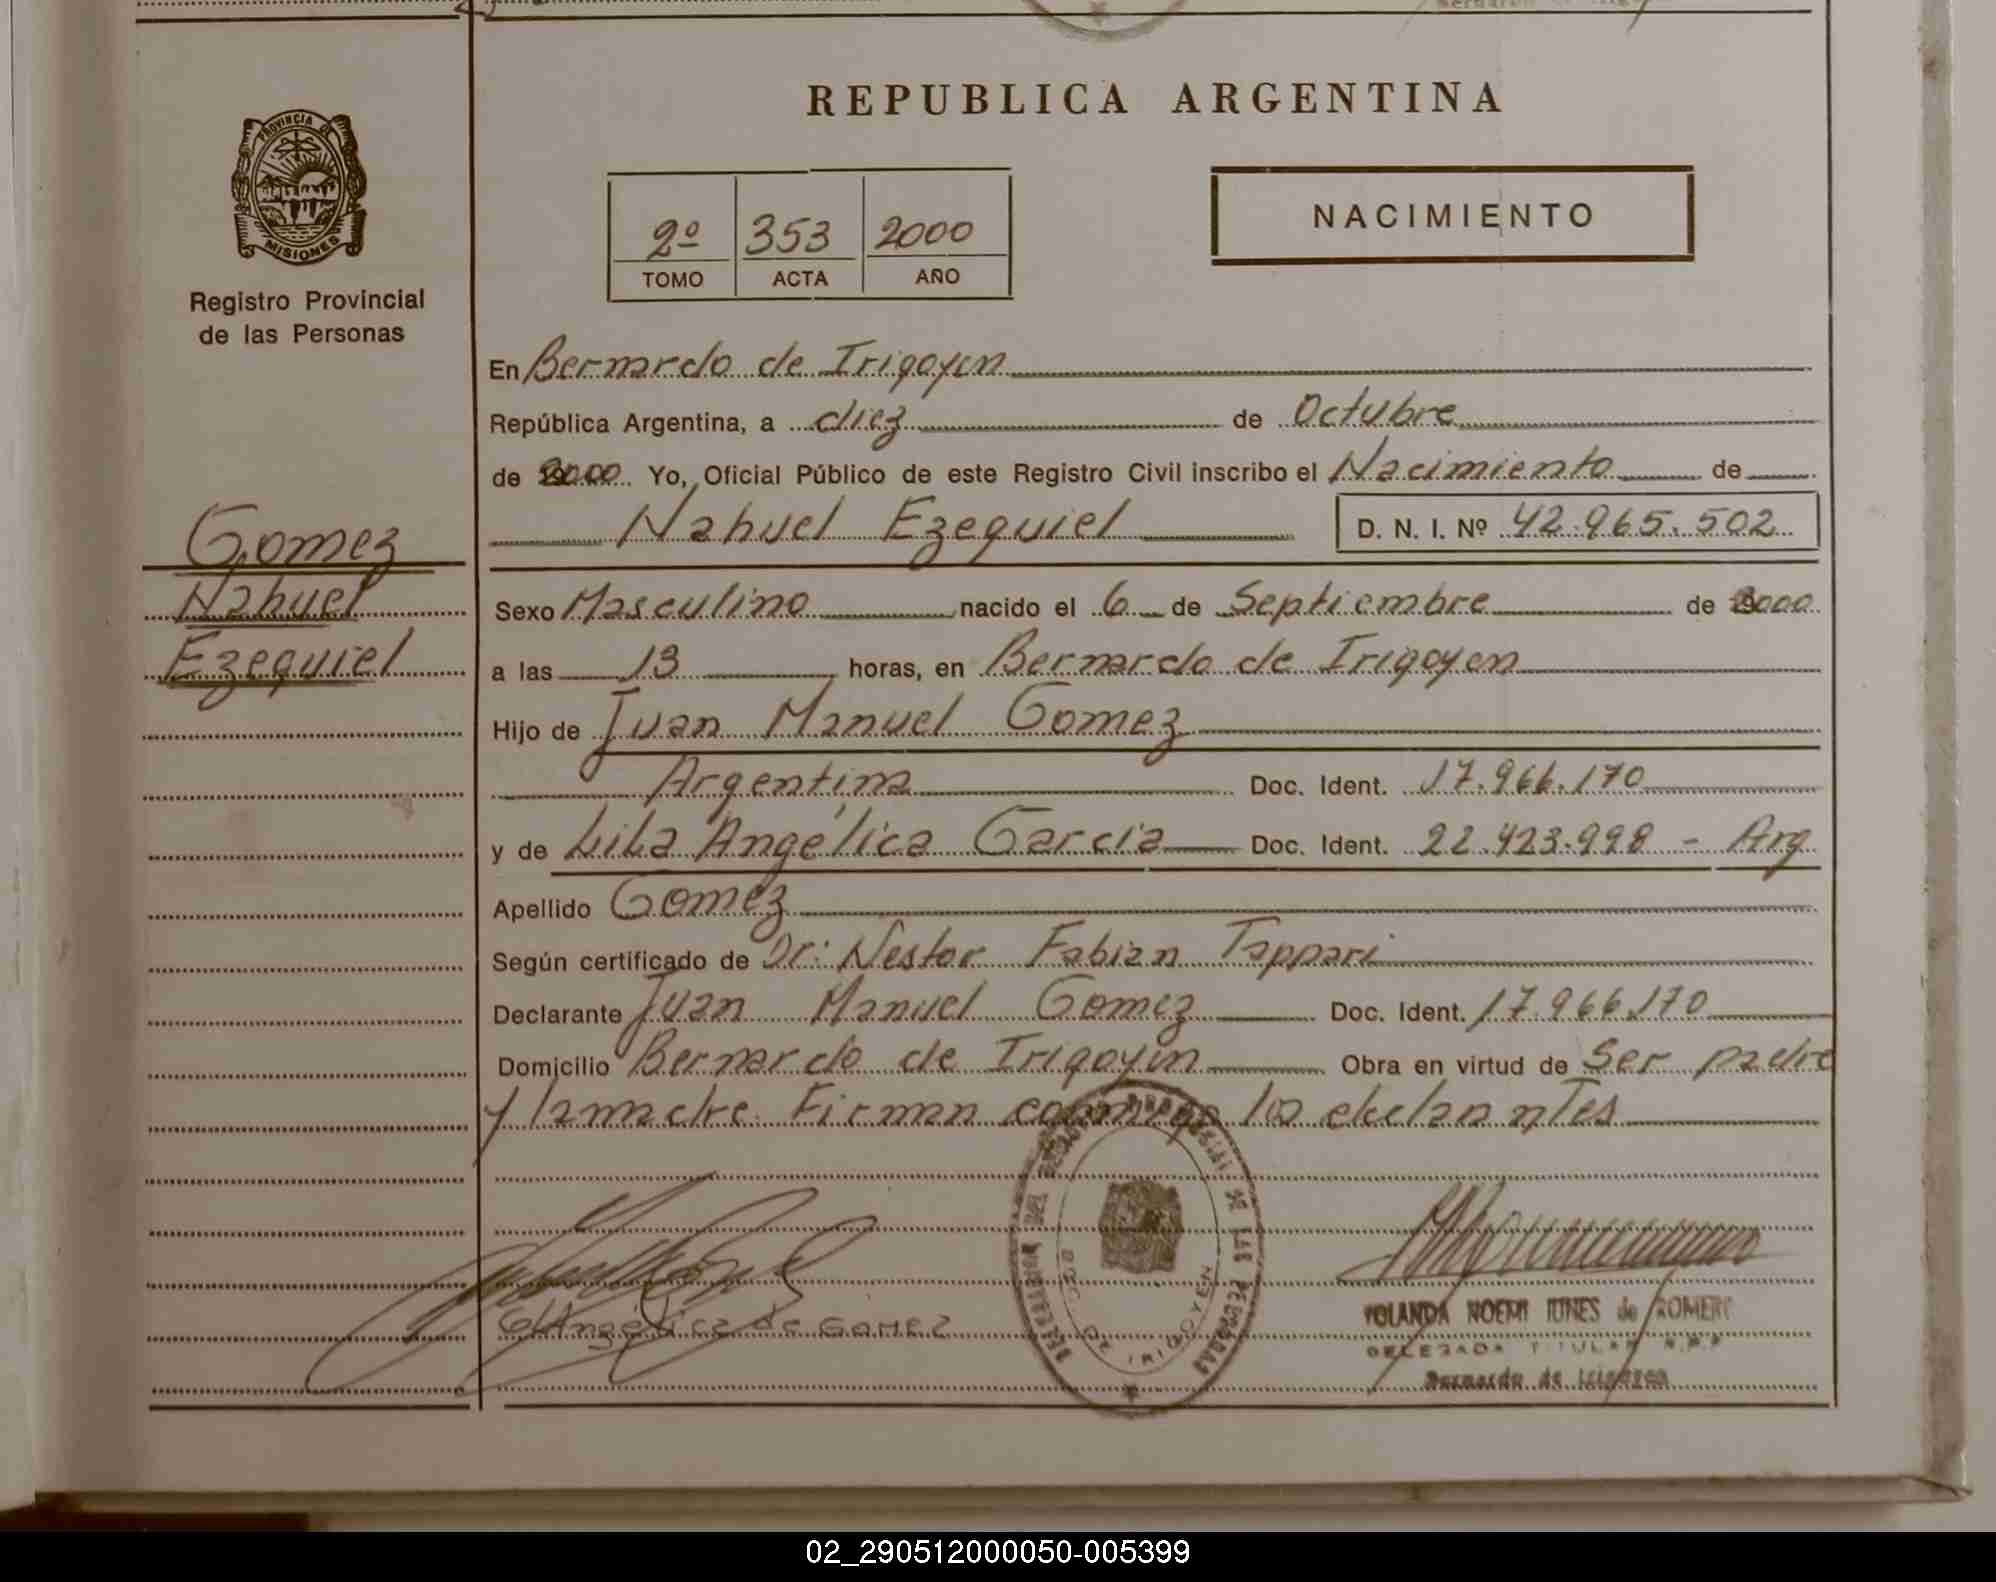 REPUBLICA ARGENTINA
PROVINCIA DE
MISIONES
Registro Provincial
de las Personas
2º 353 2000
TOMO ACTA AÑO
NACIMIENTO
En Bernardo de Irigoyen
República Argentina, a diez de Octubre
de 2000 Yo, Oficial Público de este Registro Civil inscribo el Nacimiento de
Nahuel Ezequiel D. N. I. Nº 42.965.502
Gomez
Nahuel
Ezequiel
Sexo Masculino nacido el 6 de Septiembre de 2000
a las 13 horas, en Bernardo de Irigoyen
Hijo de Juan Manuel Gomez
Argentina Doc. Ident. 17.966.170
y de Lila Angélica Garcia Doc. Ident. 22.423.998 - Arg
Apellido Gomez
Según certificado de Dr: Nestor Fabian Tappari
Declarante Juan Manuel Gomez Doc. Ident. 17.966.170
Domicilio Bernardo de Irigoyen Obra en virtud de Ser padre
y la madre. Firman conmigo los
Angélica de GOMEZ
DE IRIGOYEN
YOLANDA NOEMI de ROMERO
DELEGADA TITULAR R.P.P
Bernardo de Irigoyen
02_290512000050-005399